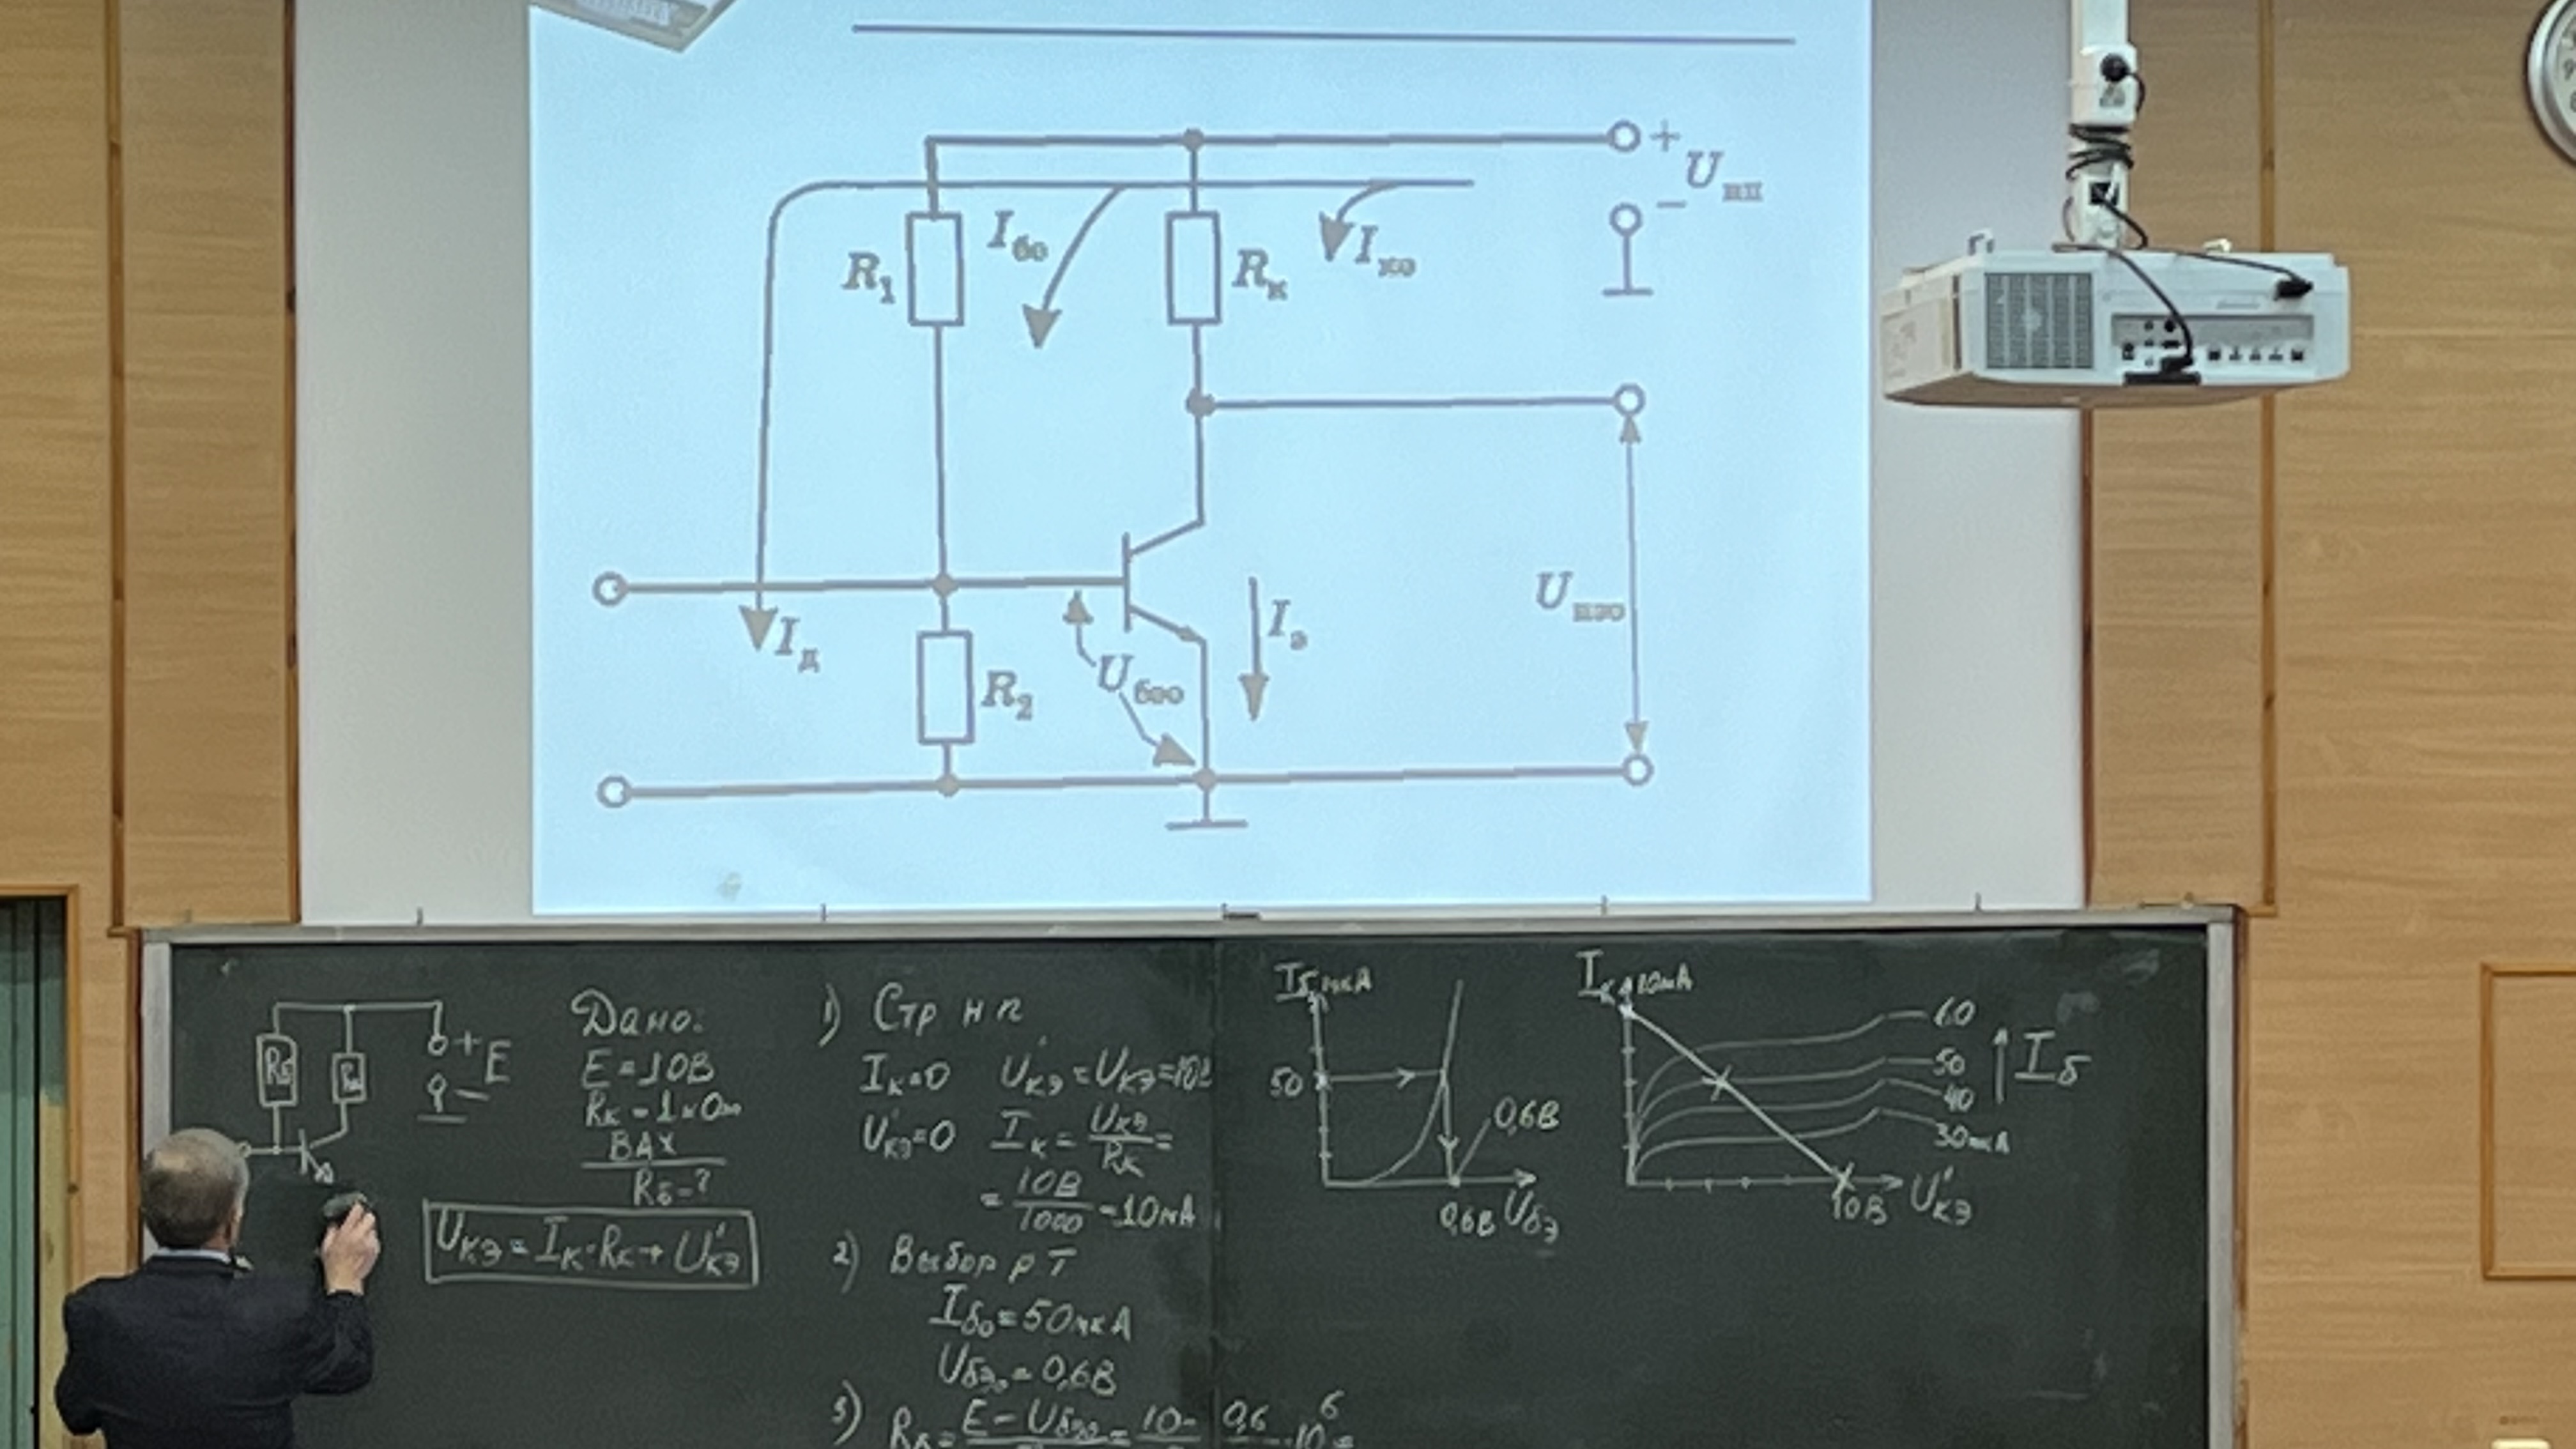 +
U ип
−
R₁
I бо
R к
I ко
I д
R₂
U бэо
I э
U кэо
Rб
Rк
+
E
−
Дано:
E = 10В
Rк = 1 кОм
ВАХ
Rб = ?
Uкэ = Iк·Rк + U'кэ
1) Стр н п
Iк=0 U'кэ = Uкэ = 10В
U'кэ=0 Iк = Uкэ/Rк =
= 10В/1000 = 10мА
2) Выбор р Т
Iбо = 50мкА
Uбэо = 0,6В
3) Rб = E − Uбэо
= 10 − 0,6
·10⁶ =
Iб мкА
50
0,6В
0,6В Uбэ
Iк 10мА
60
50
40
30мкА
Iб
10В U'кэ